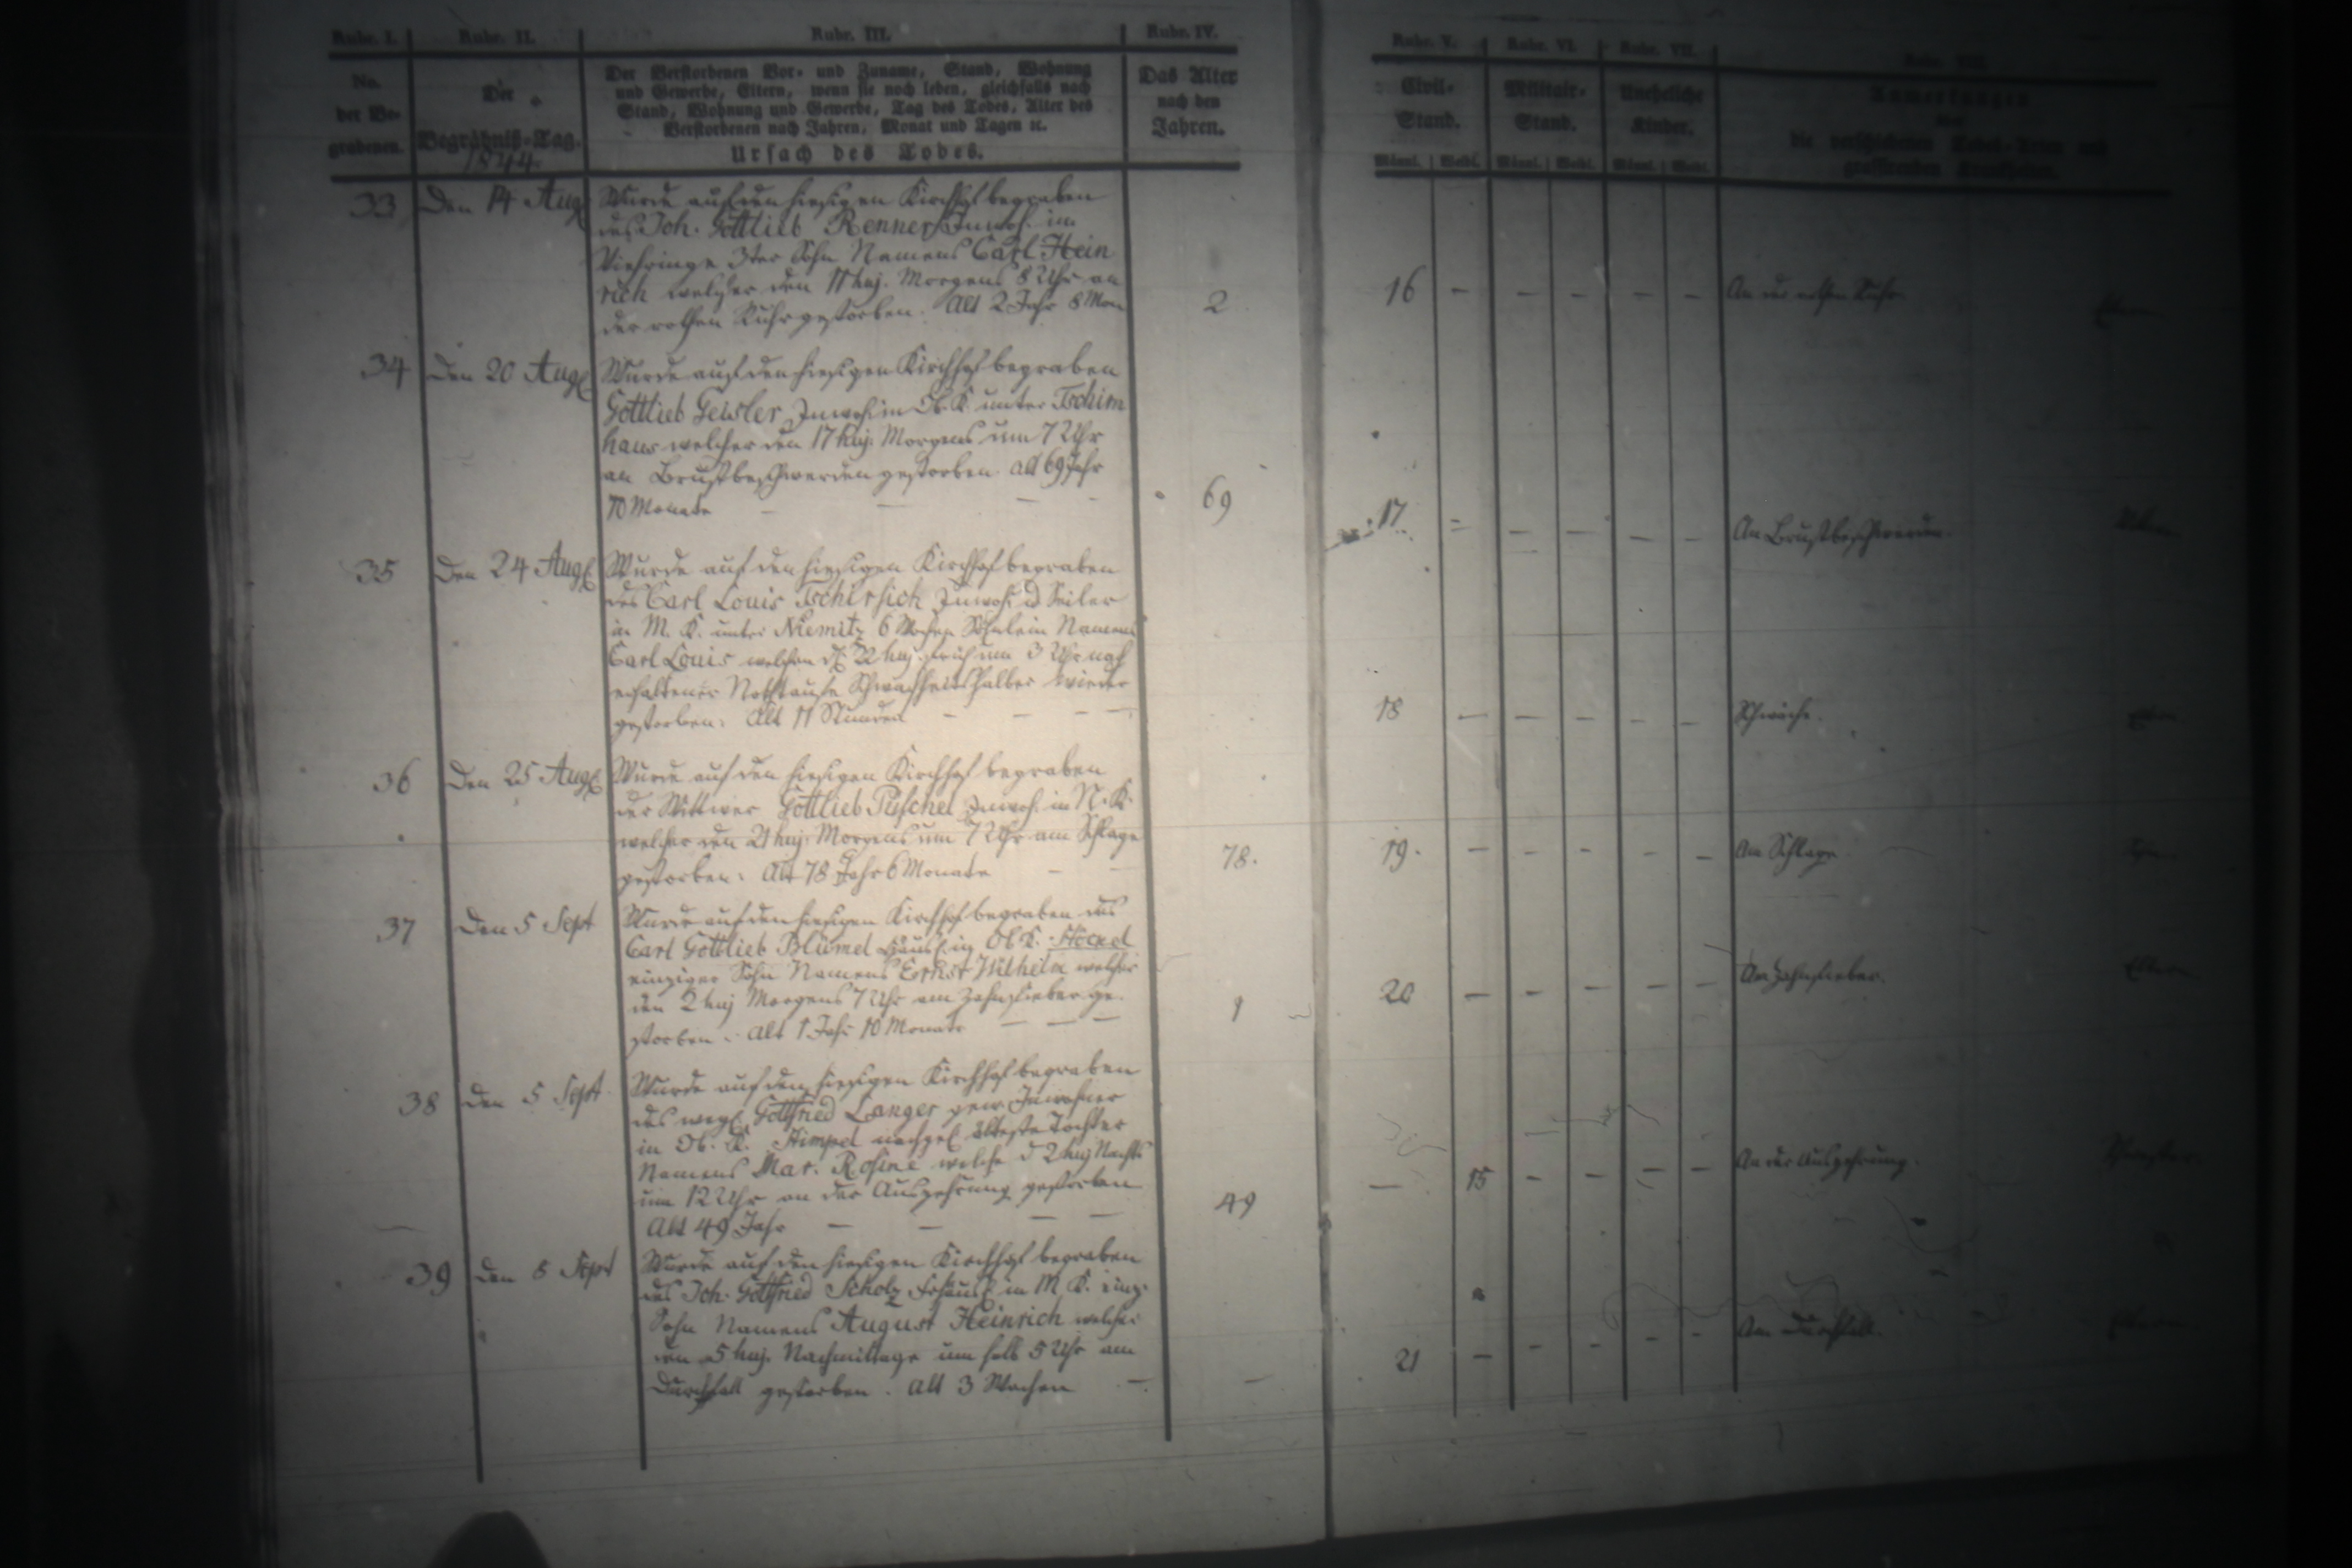 Rubr. I. Rubr. II. Rubr. III. Rubr. IV. Rubr. V. Rubr. VI. Rubr. VII.
No. der Be-grabenen.
Der Begräbniß-Tag.
1844.
Der Verstorbenen Vor- und Zuname, Stand, Wohnung
und Gewerbe, Eltern, wenn sie noch leben, gleichfalls nach
Stand, Wohnung und Gewerbe, Tag des Todes, Alter des
Verstorbenen nach Jahren, Monat und Tagen ꝛc.
Ursach des Todes.
Das Alter
nach den
Jahren.
Civil-
Stand.
Militair-
Stand.
Uneheliche
Kinder.
Männl. Weibl. Männl. Weibl. Männl. Weibl.
Anmerkungen
über
die verschiedenen Todes-Arten und
grassirenden Krankheiten.
33 Den 14 Aug Wurde auf den hiesigen Kirchhof begraben
des Joh. Gottlieb Renner Inwoh. im
Viehringe 3ter Sohn Namens Carl Hein
rich welcher den 11 huj. Morgens 8 Uhr an
der rothen Ruhr gestorben. Alt 2 Jahr 8 Mon
2 16 – – – – – An der rothen Ruhr
34 Den 20 Aug Wurde auf den hiesigen Kirchhof begraben
Gottlieb Geisler Inwoh. in Ob. K. unter Tschirn
haus welcher den 17 huj. Morgens um 7 Uhr
an Brustbeschwerden gestorben. alt 69 Jahr
10 Monate – – – –
69 17 – – – – – An Brustbeschwerden.
35 Den 24 Aug Wurde auf den hiesigen Kirchhof begraben
des Carl Louis Tschirsich Inwoh. u Seiler
in M. K. unter Niemitz Söhnlein Namens
Carl Louis welches d 22 huj. früh um 3 Uhr nach
erhaltener Nothtaufe Schwachheits halber wieder
gestorben. Alt 11 Stunden – – – –
18 – – – – – Schwäche.
36 Den 25 Aug Wurde auf den hiesigen Kirchhof begraben
der Wittwer Gottlieb Püschel Inwoh. in N. K.
welcher den 21 huj. Morgens um 7 Uhr am Schlage
gestorben. Alt 78 Jahr 6 Monate – –
78. 19. – – – – – Am Schlage
37 Den 5 Sept Wurde auf den hiesigen Kirchhof begraben des
Carl Gottlieb Blümel Häusl. in Ob K. Stöckel
einziger Sohn Namens Ernst Wilhelm welcher
den 2 huj Morgens 7 Uhr am Zahnfieber ge-
storben. Alt 1 Jahr 10 Monate – – –
1 20 – – – – – Am Zahnfieber. Eltern
38 den 5 Sept Wurde auf dem hiesigen Kirchhof begraben
des weyl. Gottfried Langer gew. Inwohner
in Ob. K. Stimpel nachgel älteste Tochter
Namens Mar. Rosine welche d 2 huj Nachts
um 12 Uhr an der Auszehrung gestorben
Alt 49 Jahr – – – –
49 – 15 – – – – An der Auszehrung.
39 den 8 Sept Wurde auf den hiesigen Kirchhof begraben
des Joh. Gottfried Scholz Frhäusl in M K. einz.
Sohn Namens August Heinrich welcher
den 5 huj. Nachmittags um halb 5 Uhr am
Durchfall gestorben. alt 3 Wochen –
– 21 – – – – – Am Durchfall.